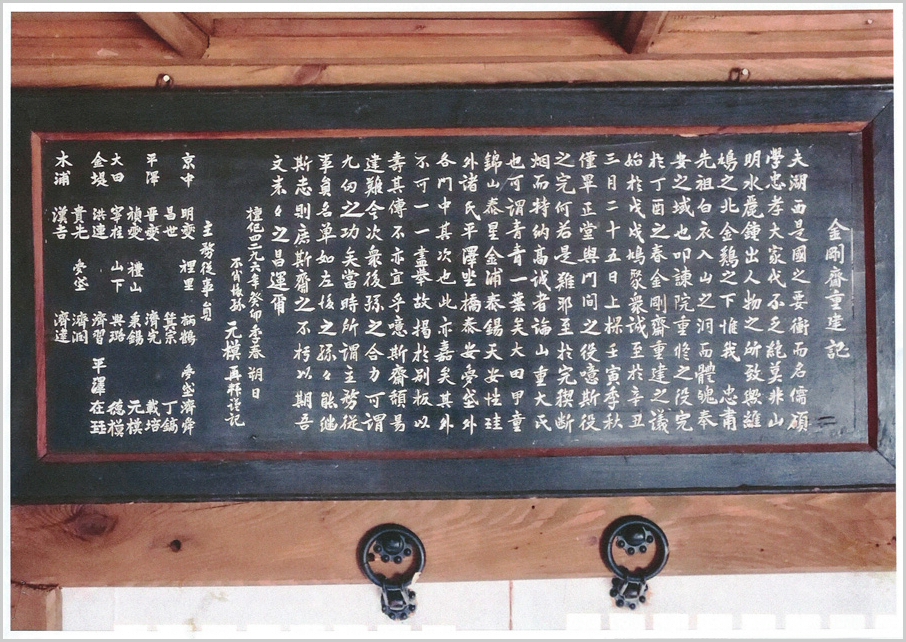 金剛齋重建記
夫湖西是國之要衝而名儒碩
學忠孝大家代不乏絶莫非山
明水麗鍾出人物之所致歟雖
鳩之北金鷄之下惟我 忠肅
先祖白衣入山之洞而體魄奉
安之域也叩諫院重修之役完
於丁酉之春金剛齋重建之議
始於戊戌鳩聚衆誠至於辛丑
三月二十五日上樑壬寅季秋
僅畢正堂與門間之役噫斯役
之完何若是難耶至於完稧斷
烟而特納高誠者論山重大氏
也可謂靑靑一葉矣大田甲童
錦山泰星金浦泰錫天安性珪
外諸氏平澤坐橋泰安安盛外
各門中其次也此亦嘉矣然而
不可一一盡擧故揭於別板以
壽其傳不亦宜乎噫斯齋頹易
建難今次㝡後孫之合力可謂
九仞之功矣當時所謂主務從
事員名單如左後之孫々能継
斯志則庶斯齋之不朽以期吾
文素々之昌運爾
檀紀四二九六年癸卯季春 朔 日
不肖後孫 元模 再拜謹記
主務從事員
京中 明燮 裡里 炳鶴 濟舜
昌世 箕宗 丁鎬
平澤 晋燮 濟完 載培
禎燮 禮山 秉錫 元模
大田 寧柱 山下 興璐 德模
金堤 洪連 濟習 平澤在珏
貴先 濟潤
木浦 漢吉 濟達